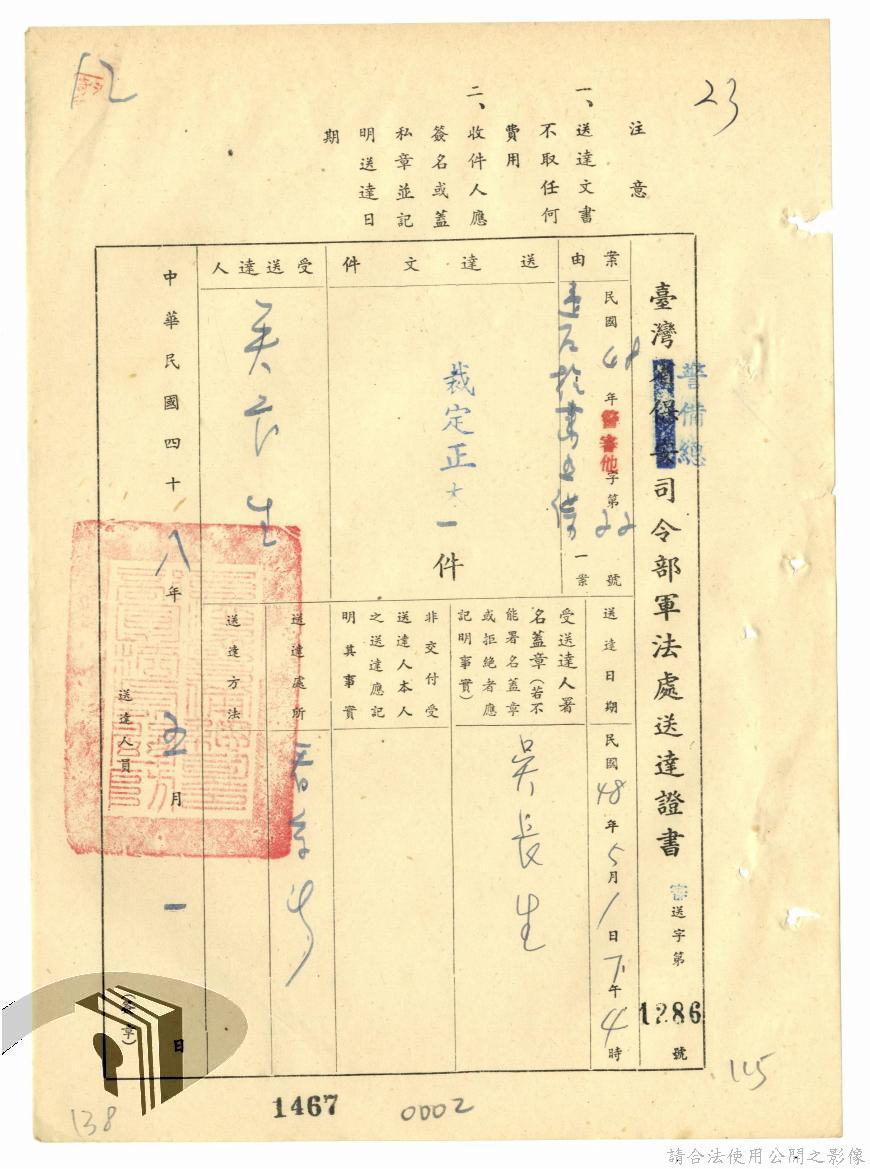 23
注意
一、送達文書
不取任何
費用
二、收件人應
簽名或蓋
私章並記
明送達日
期
臺灣警備總司令部軍法處送達證書
審送字第1286號
案由
民國48年警審他字第22號
一案
送達文件
裁定正本一件
受送達人
吳長生
送達日期
民國48年5月1日下午4時
受送達人署
名蓋章(若不
能署名蓋章
或拒絕者應
記明事實)
吳長生
非交付受
送達人本人
之送達應記
明其事實
送達處所
送達方法
中華民國四十八年五月一日
送達人員
(簽章)
1467
0002
138
115
請合法使用公開之影像